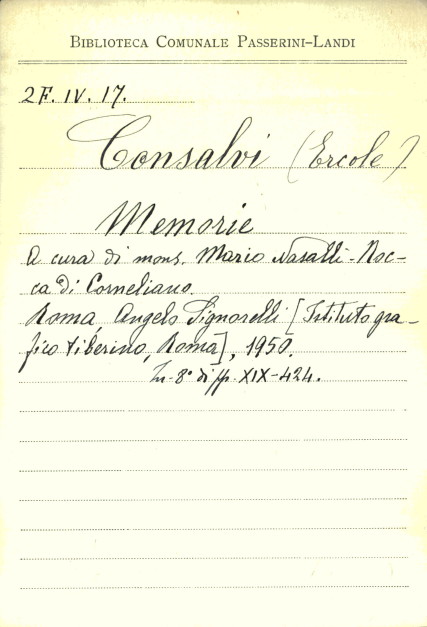 BIBLIOTECA COMUNALE PASSERINI-LANDI
2F. IV. 17.
Consalvi (Ercole)
Memorie
A cura di mons. Mario Nasalli-Roc-
ca di Corneliano.
Roma, Angelo Signorelli [Istituto gra-
fico tiberino, Roma], 1950.
In-8° di pp. XIX-424.